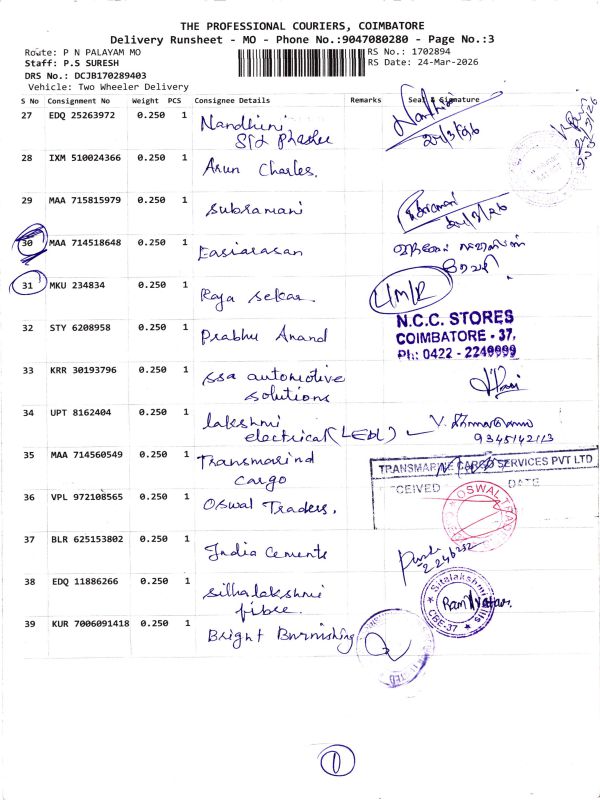 THE PROFESSIONAL COURIERS, COIMBATORE
Delivery Runsheet - MO - Phone No.:9047080280 - Page No.:3
Route: P N PALAYAM MO RS No.: 1702894
Staff: P.S SURESH RS Date: 24-Mar-2026
DRS No.: DCJB170289403
Vehicle: Two Wheeler Delivery
S No Consignment No Weight PCS Consignee Details Remarks Seal & Signature
27 EDQ 25263972 0.250 1 Nandhini
24/3/26
28 IXM 510024366 0.250 1 Arun Charles.
29 MAA 715815979 0.250 1 Subramani
30 MAA 714518648 0.250 1 Easiarasan
31 MKU 234834 0.250 1 Raja Sekar. L/M/R
N.C.C. STORES
COIMBATORE - 37.
Ph: 0422 - 2249999
32 STY 6208958 0.250 1 Prabhu Anand
33 KRR 30193796 0.250 1 ssa automotive
solutions
34 UPT 8162404 0.250 1 lakshmi
electrical (LEDL)
9345142113
35 MAA 714560549 0.250 1 Transmarind
cargo
TRANSMARINE CARGO SERVICES PVT LTD
RECEIVED DATE
36 VPL 972108565 0.250 1 Oswal Traders.
OSWAL TRAD
37 BLR 625153802 0.250 1 India Cements
2246252
38 EDQ 11886266 0.250 1 Sithalakshmi
fibre.
Sitalakshmi
CBE-37
39 KUR 7006091418 0.250 1 Bright Burnishing
1